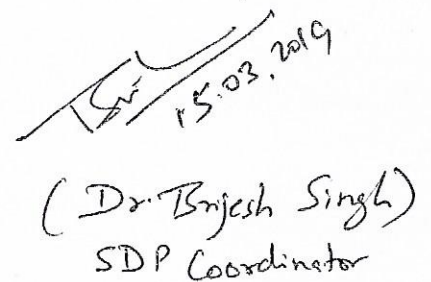 15.03.2019
(Dr. Brijesh Singh)
SDP Coordinator